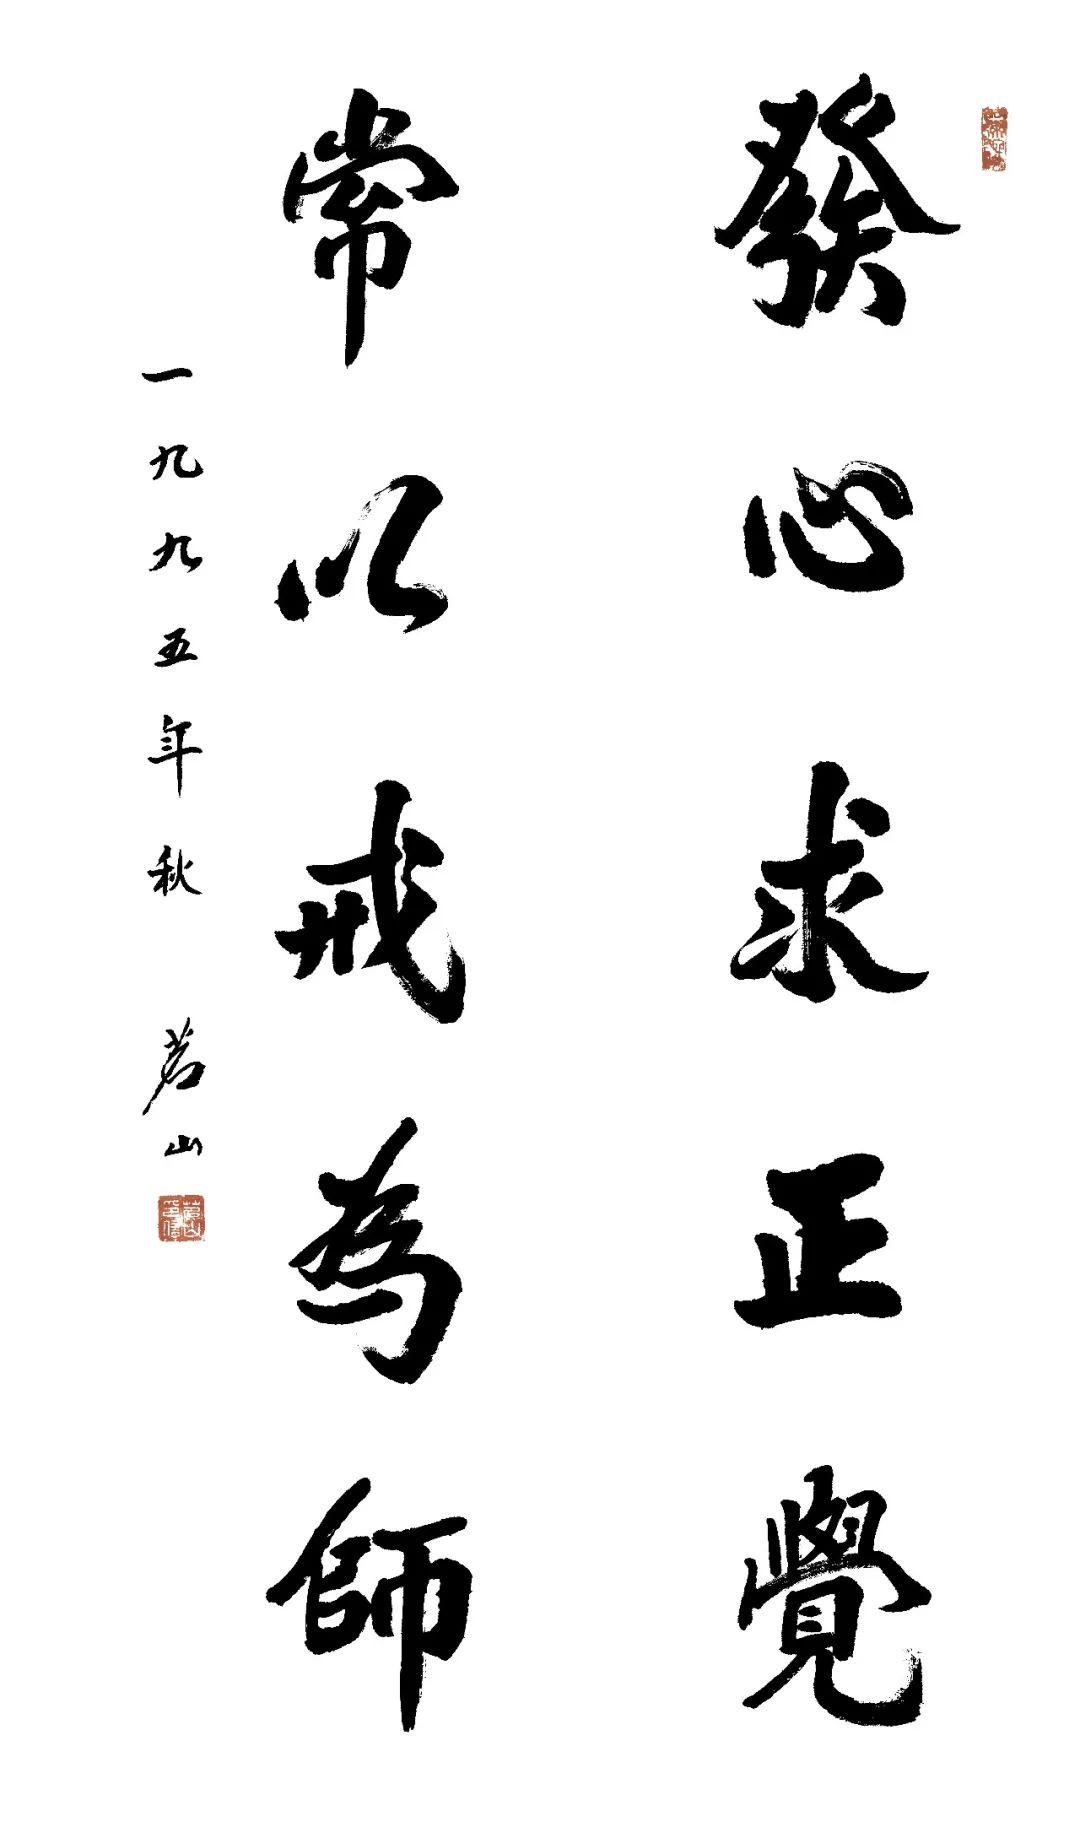 發心求正覺
常以戒為師
一九九五年秋 茗山
茗山印信